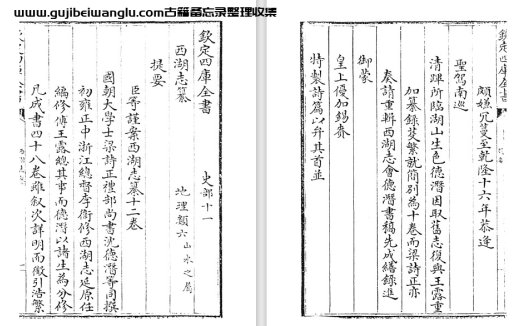 www.gujibeiwanglu.com古籍备忘录整理收集
欽定四庫全書 史部十一
西湖志纂 地理類六 山水之屬
提要
臣等謹案西湖志纂十二卷
國朝大學士梁詩正禮部尚書沈德潛等同撰
初雍正中浙江總督李衛修西湖志延原任
編修傅王露總其事而德潛以諸生為分修
凡成書四十八卷雖叙次詳明而徵引浩繁
欽定四庫全書
頗嫌冗蔓至乾隆十六年恭逢
聖駕南巡
清蹕所臨湖山生色德潛因取舊志復與王露重
加纂錄芟繁就簡別為十卷而梁詩正亦
奏請重輯西湖志會德潛書稿先成繕錄進
御蒙
皇上優加錫賚
特製詩篇以弁其首並